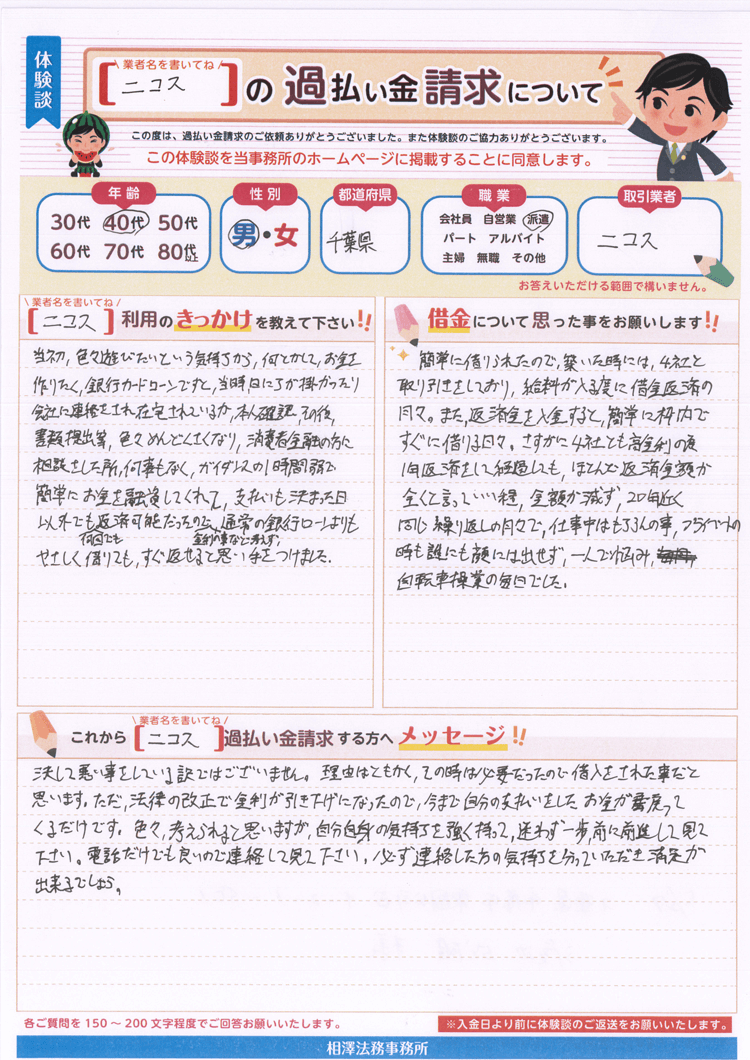 体験談
業者名を書いてね
[ニコス]の過払い金請求について
この度は、過払い金請求のご依頼ありがとうございました。また体験談のご協力ありがとうございます。
この体験談を当事務所のホームページに掲載することに同意します。
年齢
30代 40代 50代
60代 70代 80代以上
性別
男・女
都道府県
千葉県
職業
会社員 自営業 派遣
パート アルバイト
主婦 無職 その他
取引業者
ニコス
お答えいただける範囲で構いません。
業者名を書いてね
[ニコス]利用のきっかけを教えて下さい!!
当初、色々遊びたいという気持ちから、何とかして、お金を
作りたく、銀行カードローンですと、当時日にちが掛かったり
会社に連絡をされ在宅されているか、本人確認、その後、
書類提出等、色々めんどくさくなり、消費者金融の方に
相談をした所、何事もなく、ガイダンスの1時間弱で
簡単にお金を融資してくれて、支払いも決まった日
以外でも返済可能だったので、通常の銀行ローンよりも
何回でも 金利の事など考えず、
やさしく借りても、すぐ返せると思い手をつけました。
借金について思った事をお願いします!!
簡単に借りられたので、築いた時には、4社と
取り引きをしており、給料が入る度に借金返済の
月々。また、返済金を入金すると、簡単に枠内で
すぐに借りる日々。さすがに4社とも高金利の為
1回返済をして経過しても、ほとんど返済金額が
全くと言っていい程、金額が減ず、20回近く
同じ繰り返しの月々で、仕事中はもちろんの事、プライベートの
時も誰にも顔には出せず、一人で悩み、
自転車操業の毎日でした。
業者名を書いてね
これから[ニコス]過払い金請求する方へメッセージ!!
決して悪い事をしている訳ではございません。理由はともかく、その時は必要だったので借入をされた事だと
思います。ただ、法律の改正で金利が引き下げになったので、今まで自分の支払いをしたお金が戻って
くるだけです。色々、考えられると思いますが、自分自身の気持ちを強く持って、迷わず一歩、前に前進して見て
下さい。電話だけでも良いので連絡して見て下さい。必ず連絡した方の気持ちを分っていただき満足が
出来るでしょう。
各ご質問を150～200文字程度でご回答お願いいたします。
※入金日より前に体験談のご返送をお願いいたします。
相澤法務事務所